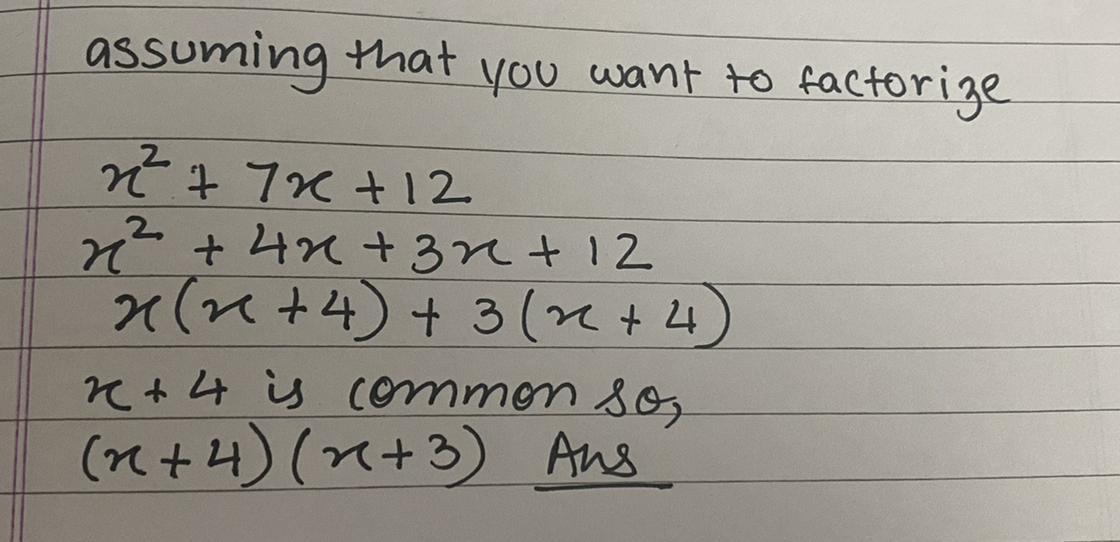 assuming that you want to factorize
x² + 7x + 12
x² + 4x + 3x + 12
x(x + 4) + 3(x + 4)
x + 4 is common so,
(x + 4)(x + 3) Ans